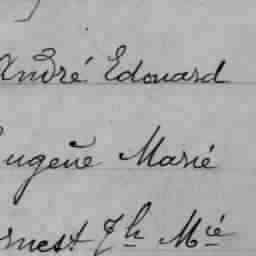 André Edouard
Eugène Marie
Ernest Jh Mie